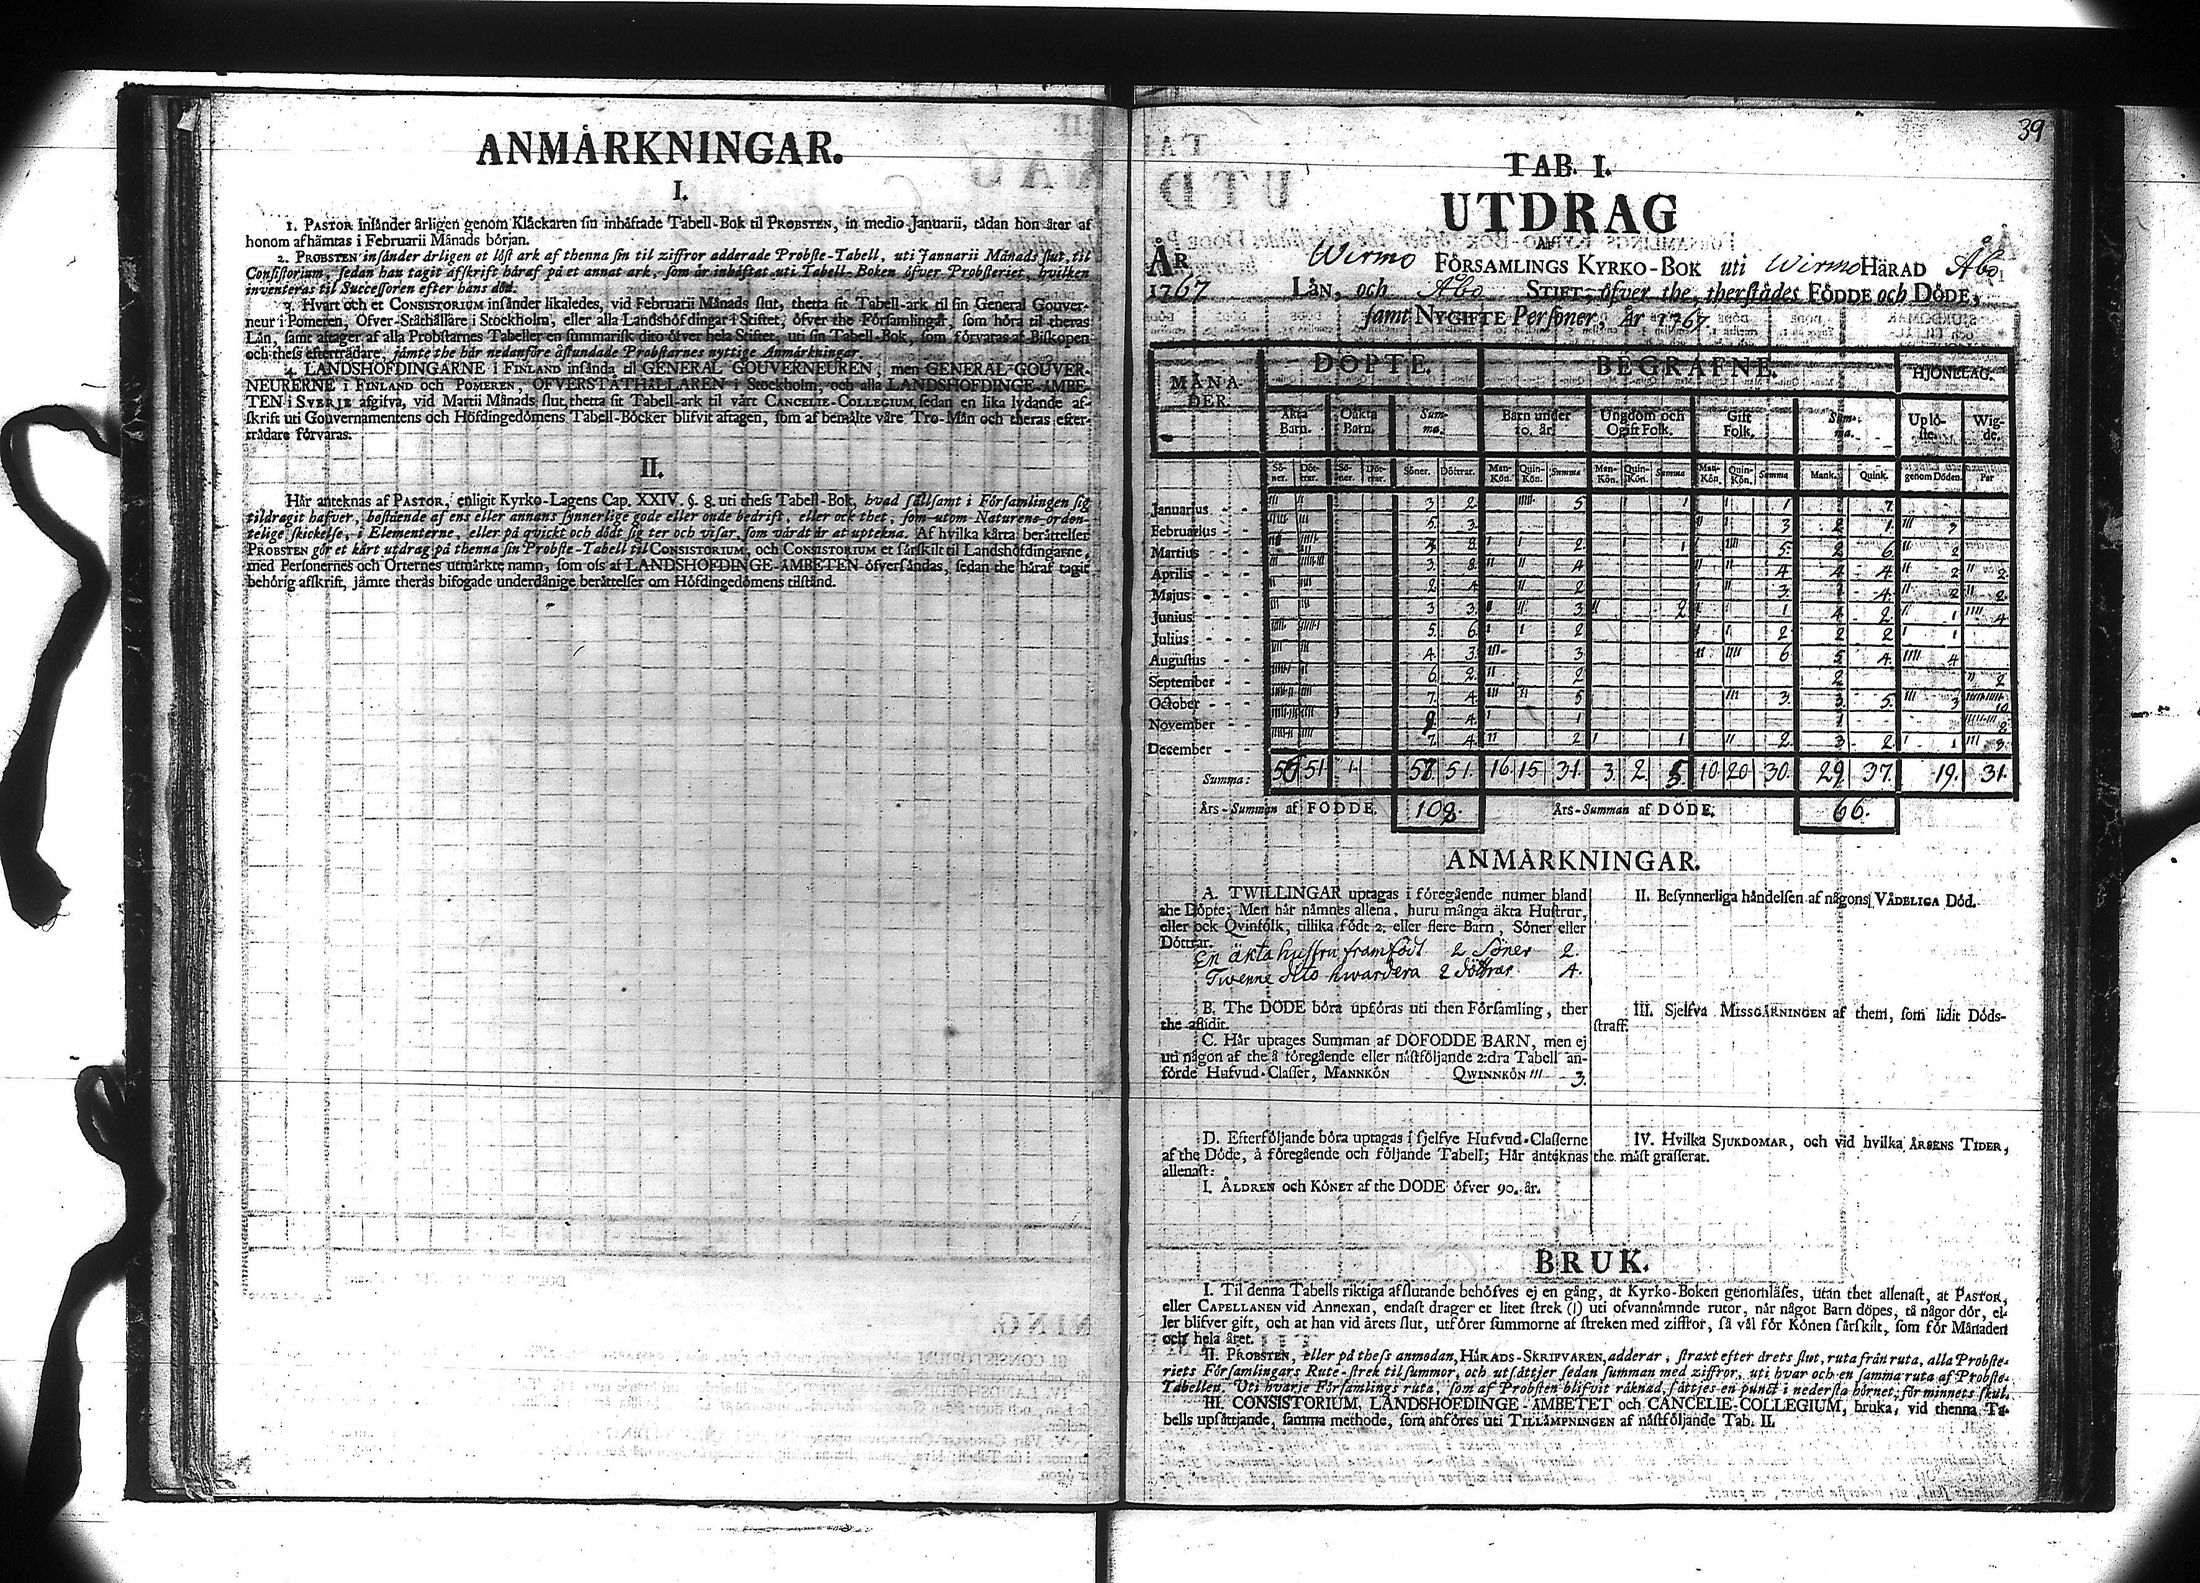 ANMÅRKNINGAR.
I.
1. PASTOR insånder årligen genom Klåckaren sin inhåftade Tabell-Bok til PROBSTEN, in medio Januarii, tådan hon åter af
honom afhåmtas i Februarii Månads bórjan.
2. PROBSTEN insånder årligen et lóst ark af thenna sin til ziffror adderade Probste-Tabell, uti Januarii Månads slut, til
Consistorium, sedan han tagit afskrift håraf på et annat ark, som år inhåftat uti Tabell-Boken ófver Probsteriet, hvilken
inventeras til Successoren efter hans dód.
3. Hvart och et CONSISTORIUM insånder likaledes, vid Februarii Månads slut, thetta sit Tabell-ark til sin General Gouver-
neur i Pomeren, Ófver-Ståthållare i Stockholm, eller alla Landshófdingar i Stiftet, ófver the Fórsamlingar, som hóra til theras
Lån, samt aftager af alla Probstarnes Tabeller en summarisk dito ófver hela Stiftet, uti sin Tabell-Bok, som fórvaras af Biskopen
och thess eftertrådare, jåmte the hår nedanfóre åstundade Probstarnes nyttige Anmårkningar.
4. LANDSHÓFDINGARNE i FINLAND insånda til GENERAL GOUVERNEUREN, men GENERAL-GOUVER-
NEURERNE i FINLAND och POMEREN, ÓFVERSTÅTHÅLLAREN i Stockholm, och alla LANDSHÓFDINGE-ÅMBE-
TEN i SVERJE afgifva, vid Martii Månads slut, thetta sit Tabell-ark til vårt CANCELIE-COLLEGIUM, sedan en lika lydande af-
skrift uti Gouvernamentens och Hófdingedómens Tabell-Bócker blifvit aftagen, som af bemålte våre Tro-Mån och theras efter-
trådare fórvaras.
II.
Hår anteknas af PASTOR, enligit Kyrko-Lagens Cap. XXIV. §. 8. uti thess Tabell-Bok, hvad sållsamt i Fórsamlingen sig
tildragit hafver, bestående af ens eller annans synnerlige gode eller onde bedrift, eller ock thet, som utom Naturens orden-
telige skickelse, i Elementerne, eller på qvickt och dódt sig ter och visar, som vårdt år at uptekna. Af hvilka kårta beråttelser
PROBSTEN gór et kårt utdrag på thenna sin Probste-Tabell til CONSISTORIUM, och CONSISTORIUM et sårskilt til Landshófdingarne,
med Personernes och Orternes utmårkte namn, som oss af LANDSHÓFDINGE-ÅMBETEN ófversåndas, sedan the håraf tagit
behórig afskrift, jåmte theras bifogade underdånige beråttelser om Hófdingedómens tilstånd.
39
TAB. I.
UTDRAG
AF
ÅR Wirmo FÓRSAMLINGS KYRKO-BOK uti Wirmo HÅRAD Åbo
1767 LÅN, och Åbo STIFT, ófver the, therstådes FÓDDE och DÓDE,
samt NYGIFTE Persóner, År 1767
MÅNA-DER. DÓPTE. BEGRAFNE. HJONELAG.
Åkta Barn. Oåkta Barn. Sum-ma. Barn under 10. år. Ungdom och Ogift Folk. Gift Folk. Sum-ma. Upló-ste. Wig-de.
Só-ner. Dót-trar. Só-ner. Dót-trar. Sóner. Dóttrar. Man-Kón. Quin-Kón. Summa Man-Kón. Quin-Kón. Summa Man-Kón. Quin-Kón. Summa Mank. Quink. genom Dóden. Par
Januarius - - 3 2 5 1 1 7
Februarius - - 5 3 3 2 1 3
Martius - - 4 8 2 1 5 2 6 2
Aprilis - - 3 8 4 4 4 4 2 2
Majus - - 2 4 2 3 1 4 2 2
Junius - - 3 3 3 2 1 4 2 1 4
Julius - - 5 6 2 2 2 2 1
Augustus - - 4 3 3 6 5 4 4
September - - 6 2 2 2 2
October - - 7 4 5 3 3 5 3 10
November - - 4 1 1 8
December - - 7 4 2 1 2 3 2 1 3
Summa: 51 1 51. 16 15 31. 3 2 5 10 20 30. 29 37. 19. 31.
Års-Summan af FÓDDE. 108. Års-Summan af DÓDE. 66.
ANMÅRKNINGAR.
A. TWILLINGAR uptagas i fóregående numer bland
the Dópte; Men hår nåmnes allena, huru många åkta Hustrur,
eller ock Qvinfólk, tillika fódt 2. eller flere Barn, Sóner eller
Dóttrar.
En äkta hustru framfödt 2 Söner 2.
Twenne dito hwardera 2 döttrar 4.
B. The DÓDE bóra upfóras uti then Fórsamling, ther
the aflidit.
C. Hår uptages Summan af DÓDFÓDDE BARN, men ej
uti någon af the å fóregående eller nåstfóljande 2:dra Tabell an-
fórde Hufvud-Classer, MANNKÓN QWINNKÓN III 3.
D. Efterfóljande bóra uptagas i sjelfve Hufvud-Classerne
af the Dóde, å fóregående och fóljande Tabell; Hår anteknas
allenast:
I. ÅLDREN och KÓNET af the DÓDE ófver 90. år.
II. Besynnerliga håndelsen af någons VÅDELIGA Dód.
III. Sjelfva MISSGÅRNINGEN af them, som lidit Dóds-
straff.
IV. Hvilka SJUKDOMAR, och vid hvilka ÅRSENS TIDER,
the måst grasserat.
BRUK.
I. Til denna Tabells riktiga afslutande behófves ej en gång, at Kyrko-Boken genomlåses, utan thet allenast, at PASTOR,
eller CAPELLANEN vid Annexan, endast drager et litet strek (I) uti ofvannåmnde rutor, når något Barn dópes, tå någor dór, el-
ler blifver gift, och at han vid årets slut, utfórer summorne af streken med ziffror, så vål fór Kónen sårskilt, som fór Månaden
och hela året.
II. PROBSTEN, eller på thess anmodan, HÅRADS-SKRIFVAREN, adderar, straxt efter årets slut, ruta från ruta, alla Probste-
riets Fórsamlingars Rute-strek til summor, och utsåttjer sedan summan med ziffror, uti hvar och en samma ruta af Probste-
Tabellen. Uti hvarje Fórsamlings ruta, som af Probsten blifvit råknad, såttjes en punct i nedersta hórnet, fór minnets skul.
III. CONSISTORIUM, LANDSHÓFDINGE-ÅMBETET och CANCELIE-COLLEGIUM, bruka, vid thenna Ta-
bells upsåttjande, samma methode, som anfóres uti TILLÅMPNINGEN af nåstfóljande Tab. II.